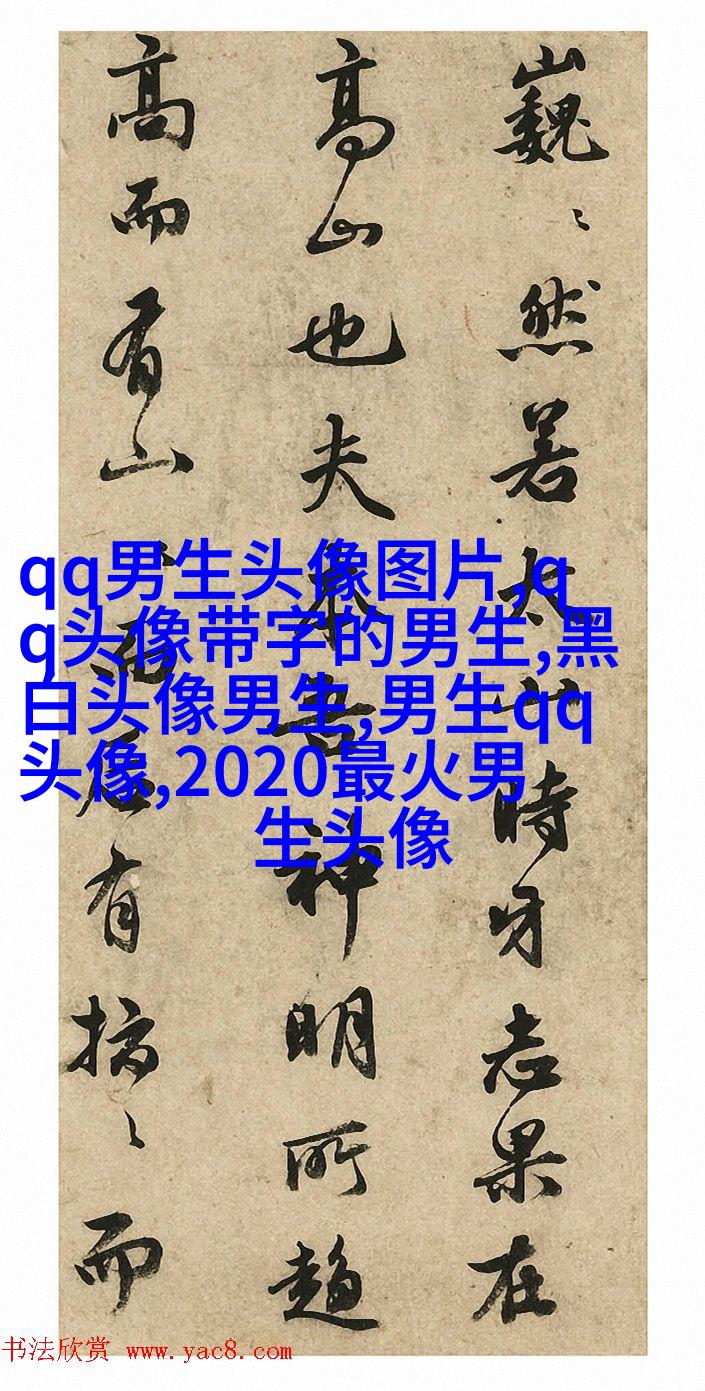 巍〻然若太山時牙志果在
高山也夫神明所趨
高而有山而有搞〻而
qq男生头像图片,q
q头像带字的男生,黑
白头像男生,男生qq
头像,2020最火男
生头像
书法欣赏 www.yac8.com